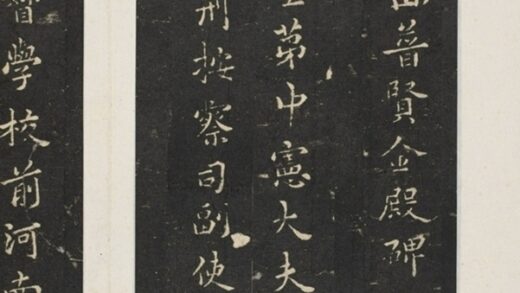 山普賢金殿碑
士第中憲大夫
刑按察司副使
督學校前河南